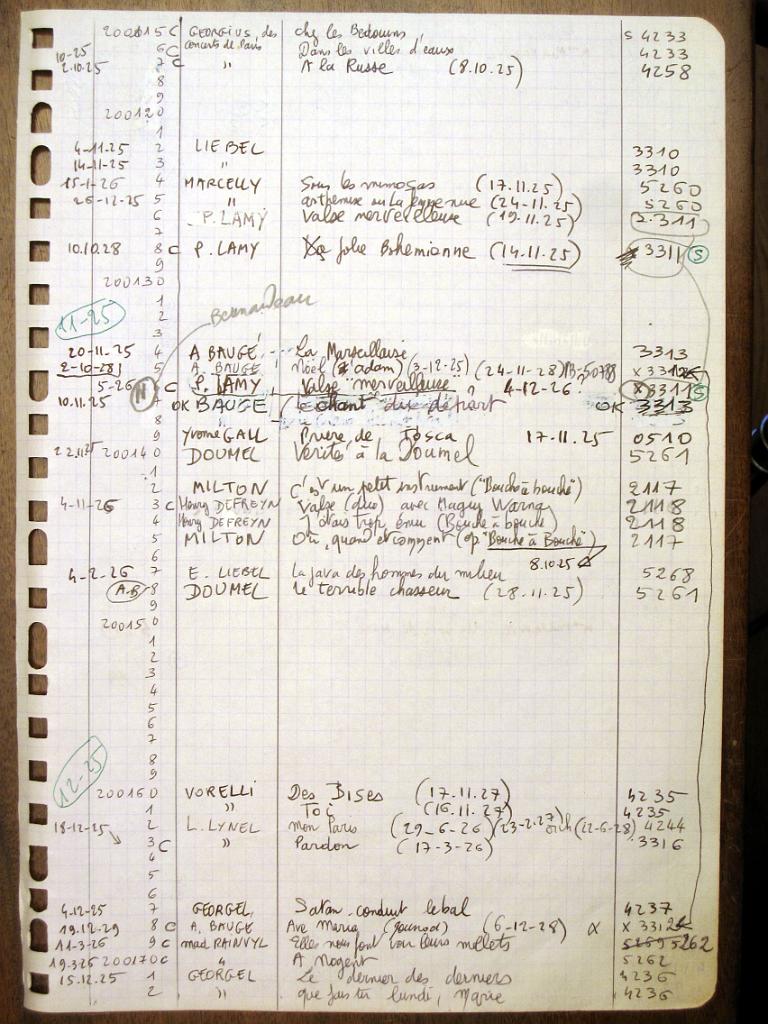 200115 C GEORGIUS, des Chez les Bedouins, S 4233
6 C concerts de Paris Dans les villes d'eaux 4233
10-25
2.10.25 7 C " A la Russe (8.10.25) 4258
8
9
200120
1
4-11-25 2 LIEBEL 3310
14-11-25 3 " 3310
15-1-26 4 MARCELLY Sous les mimosas (17.11.25) 5260
26-12-25 5 " ou la (24-11.25) 5260
6 P. LAMY Valse merveilleuse (19.11.25) 2.311
7
10.10.28 8 C P. LAMY folie Bohemianne (14.11.25) 3311 S
9
200130
1
Bernardeau
11-25 2
3
20-11-25 4 A BAUGÉ La Marseillaise 3313
2-10-28 5 A. BAUGÉ Noël (d'adam) (3-12-25) (24-11-28)
5-26 H 6 C P. LAMY Valse merveilleuse ? 4-12-26 X 3311 S
10.11.25 7 OK BAUGE le chant du départ OK 3313
8
9 Yvonne GALL Prière de Tosca 17-11.25 0510
22.11.25 200140 DOUMEL Vérités à la Doumel 5261
1
2 MILTON C'est un petit instrument ("Bouche à bouche") 2117
4-11-26 3 C Henry DEFREYN Valse (duo) avec Maguy Warna 2118
4 Henry DEFREYN J'étais trop ému (Bouche à bouche) 2118
5 MILTON Où, quand et comment (op "Bouche à Bouche") 2117
6 8.10.25
4-2-26 7 E. LIEBEL La java des hommes du milieu 5268
A.B 8 DOUMEL le terrible chasseur (28.11.25) 5261
9
200150
1
2
3
4
5
6
7
8
12-25 9
200160 VORELLI Des Bises (17.11.27) 4235
1 " Toi (16.11.27) 4235
18-12-25 2 L. LYNEL Mon Paris (29-6-26) (23-2.27) orch (22-6-28) 4244
3 C " Pardon (17-3-26) 3316
4
5
6
4-12-25 7 GEORGEL Satan conduit le bal 4237
19.12.29 8 C A. BAUGE Ave Maria (gounod) (6-12-28) X X 3312
11-3-26 9 C mad RAINVYL Elles nous font voir leurs mollets 5262
19.3.26 200170 C " A Nogent 5262
15.12.25 1 GEORGEL Le dernier des derniers 4236
2 " que fais tu lundi, Marie 4236